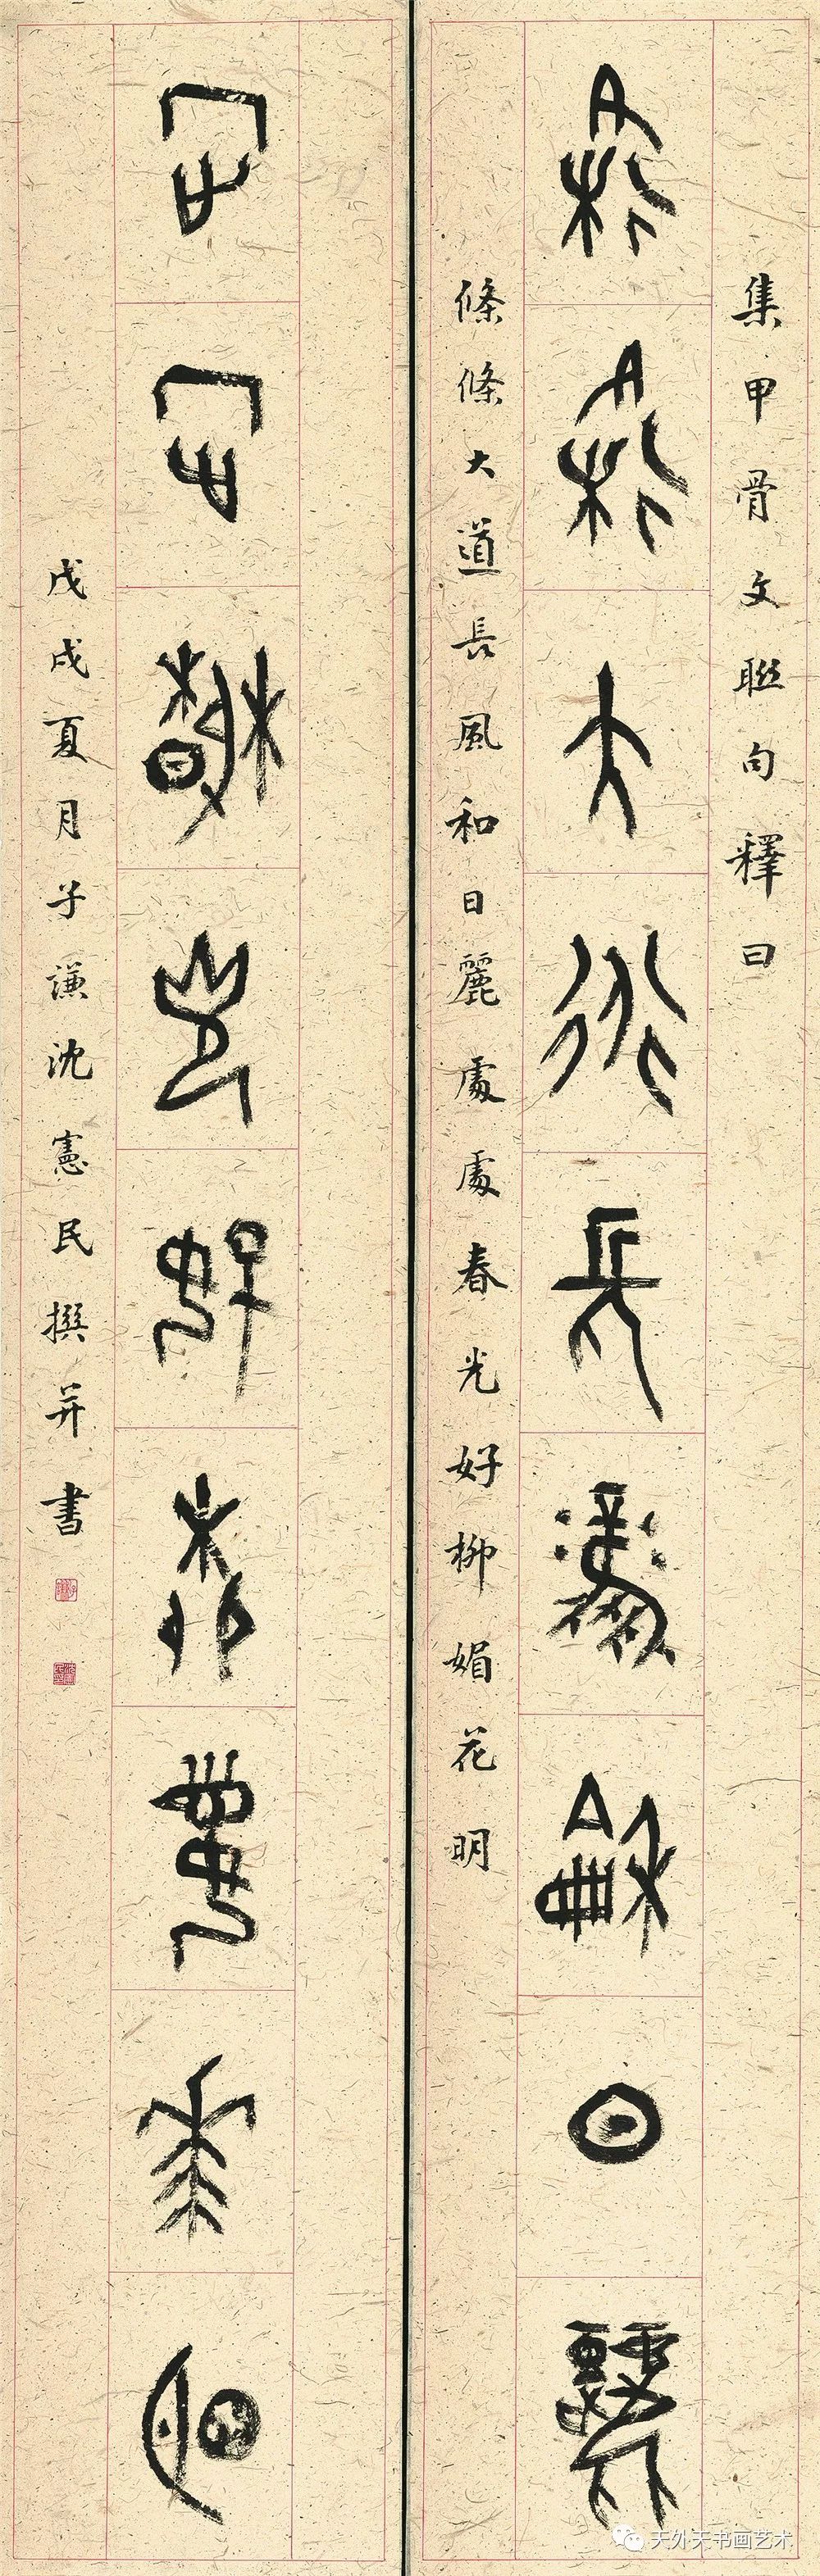 集甲骨文聯句釋曰
條條大道長風和日麗
條條大道長風和日麗處處春光好柳媚花明
處處春光好柳媚花明
戊戌夏月子謙沈憲民撰并書
天外天书画艺术